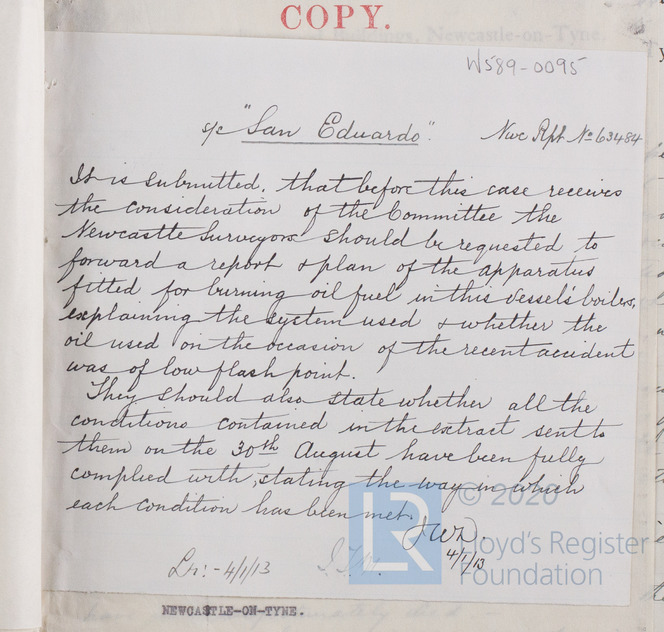 COPY.
Buildings, Newcastle-on-Tyne,
W589-0095
s/c "San Eduardo". Nwc Rpt No 63484
It is submitted, that before this case receives
the consideration of the Committee the
Newcastle Surveyors should be requested to
forward a report & plan of the apparatus
fitted for burning oil fuel in this vessel's boilers,
explaining the system used & whether the
oil used on the occasion of the recent accident
was of low flash point.
They should also state whether all the
conditions contained in the extract sent to
them on the 30th August have been fully
complied with, stating the way in which
each condition has been met.
4/1/13
Lr:- 4/1/13
LR © 2020
Lloyd's Register
Foundation
NEWCASTLE-ON-TYNE.